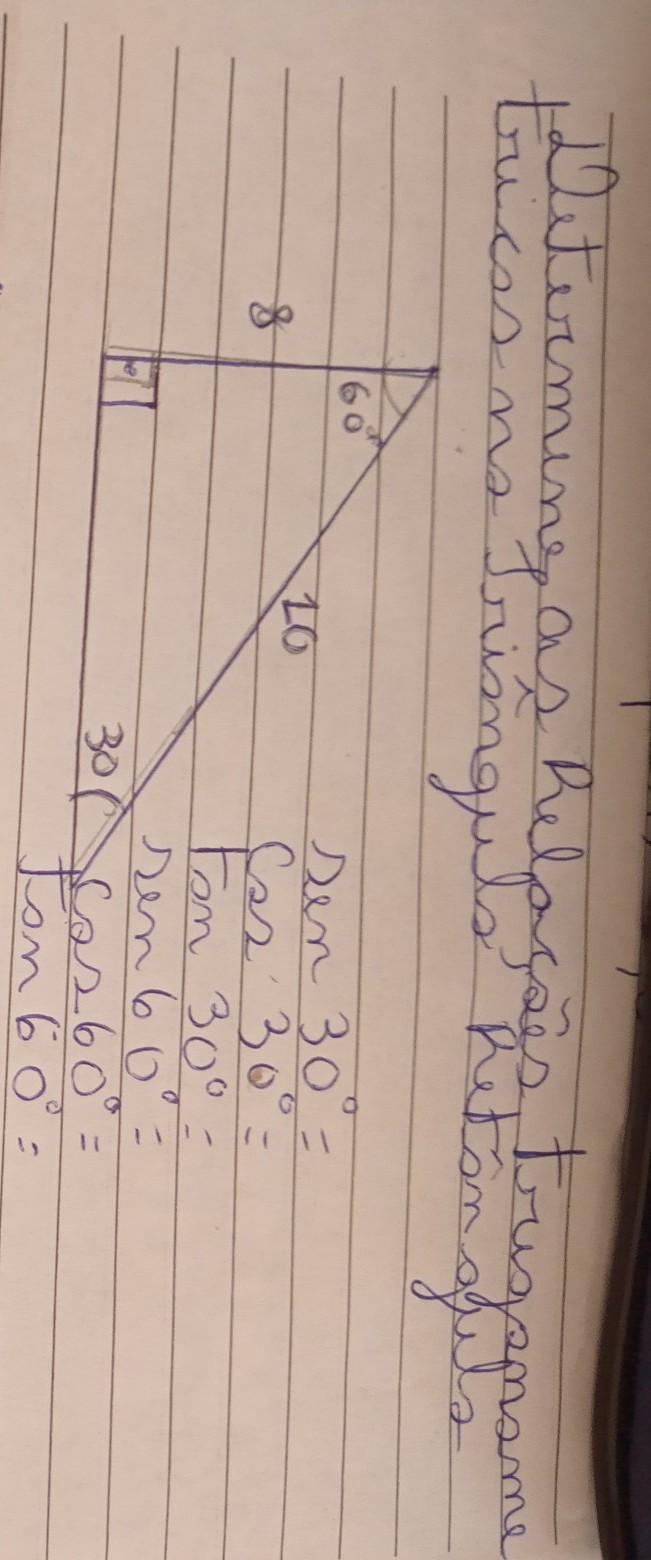 Determine as Relações trigonome
tricas no Triângulo Retângulo
8
60°
16
30
sen 30° =
Cos 30° =
Tan 30° =
sen 60° =
Cos 60° =
Tan 60° =